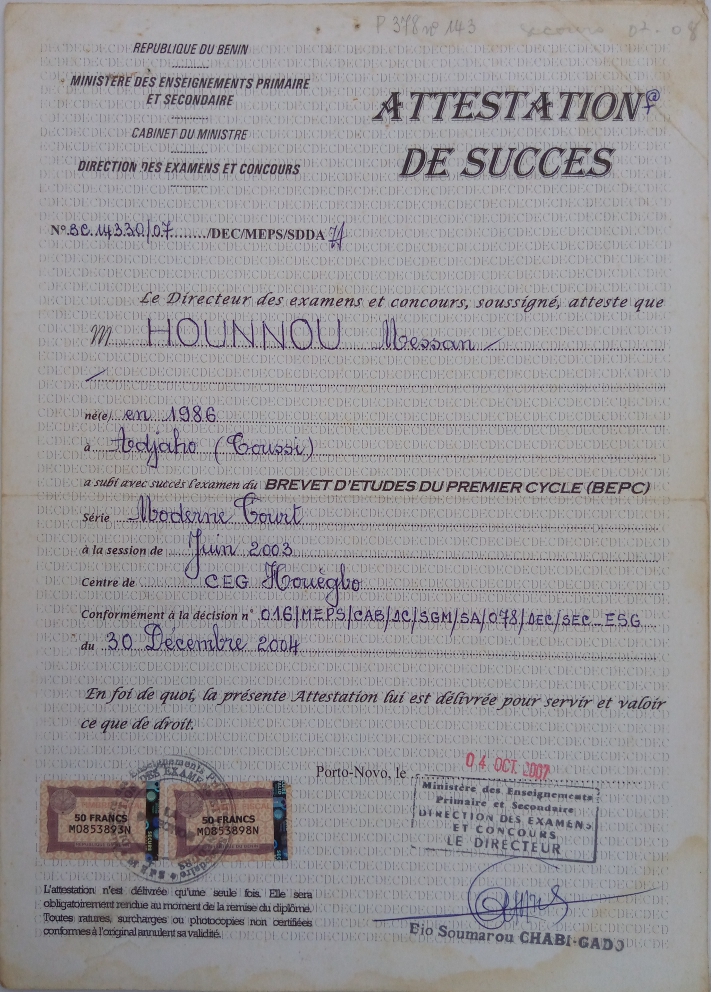 P 378 n° 143
REPUBLIQUE DU BENIN
MINISTERE DES ENSEIGNEMENTS PRIMAIRE
ET SECONDAIRE
CABINET DU MINISTRE
DIRECTION DES EXAMENS ET CONCOURS
ATTESTATION
DE SUCCES
N° SC 14330/07........./DEC/MEPS/SDDA
Le Directeur des examens et concours, soussigné, atteste que
M HOUNNOU Messan
né(e) en 1986
à Adjaho (Toussi)
a subi avec succès l'examen du BREVET D'ETUDES DU PREMIER CYCLE (BEPC)
Série Moderne Court
à la session de Juin 2003
Centre de CEG Houégbo
Conformément à la décision n° 016/MEPS/CAB/DC/SGM/SA/078/DEC/SEC_ESG
du 30 Décembre 2004
En foi de quoi, la présente Attestation lui est délivrée pour servir et valoir
ce que de droit.
Porto-Novo, le 04 OCT. 2007
Ministère des Enseignements
Primaire et Secondaire
DIRECTION DES EXAMENS
ET CONCOURS
LE DIRECTEUR
50 FRANCS
M0853893N
50 FRANCS
M0853898N
L'attestation n'est délivrée qu'une seule fois. Elle sera
obligatoirement rendue au moment de la remise du diplôme.
Toutes ratures, surcharges ou photocopies non certifiées
conformes à l'original annulent sa validité.
Bio Soumarou CHABI-GADO